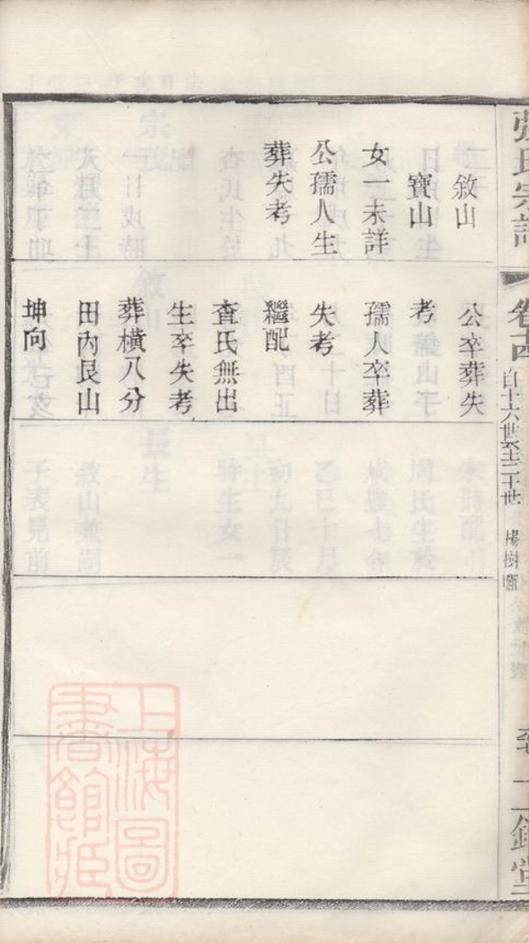 張氏宗譜
卷
自十六世長至二十世
楊樹
敘山
寶山
女一未詳
公孺人生
葬失考
公卒葬失
考
孺人卒葬
失考
繼配
查氏無出
生卒失考
葬橫八分
田內艮山
坤向
上海圖
書館藏